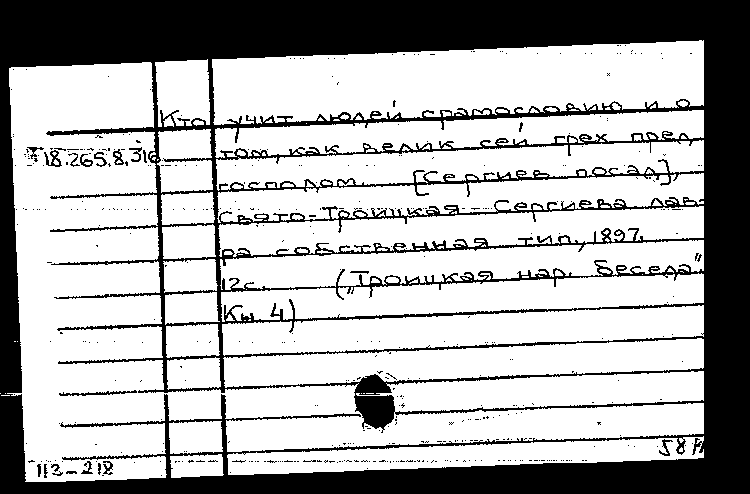 Кто учит людей срамословию и о
18.265.8.316
том, как велик сей грех пред
господом. [Сергиев посад],
Свято-Троицкая-Сергиева лав-
ра собственная тип., 1897.
12с. („Троицкая нар. беседа".
Кн. 4)
58
113-218